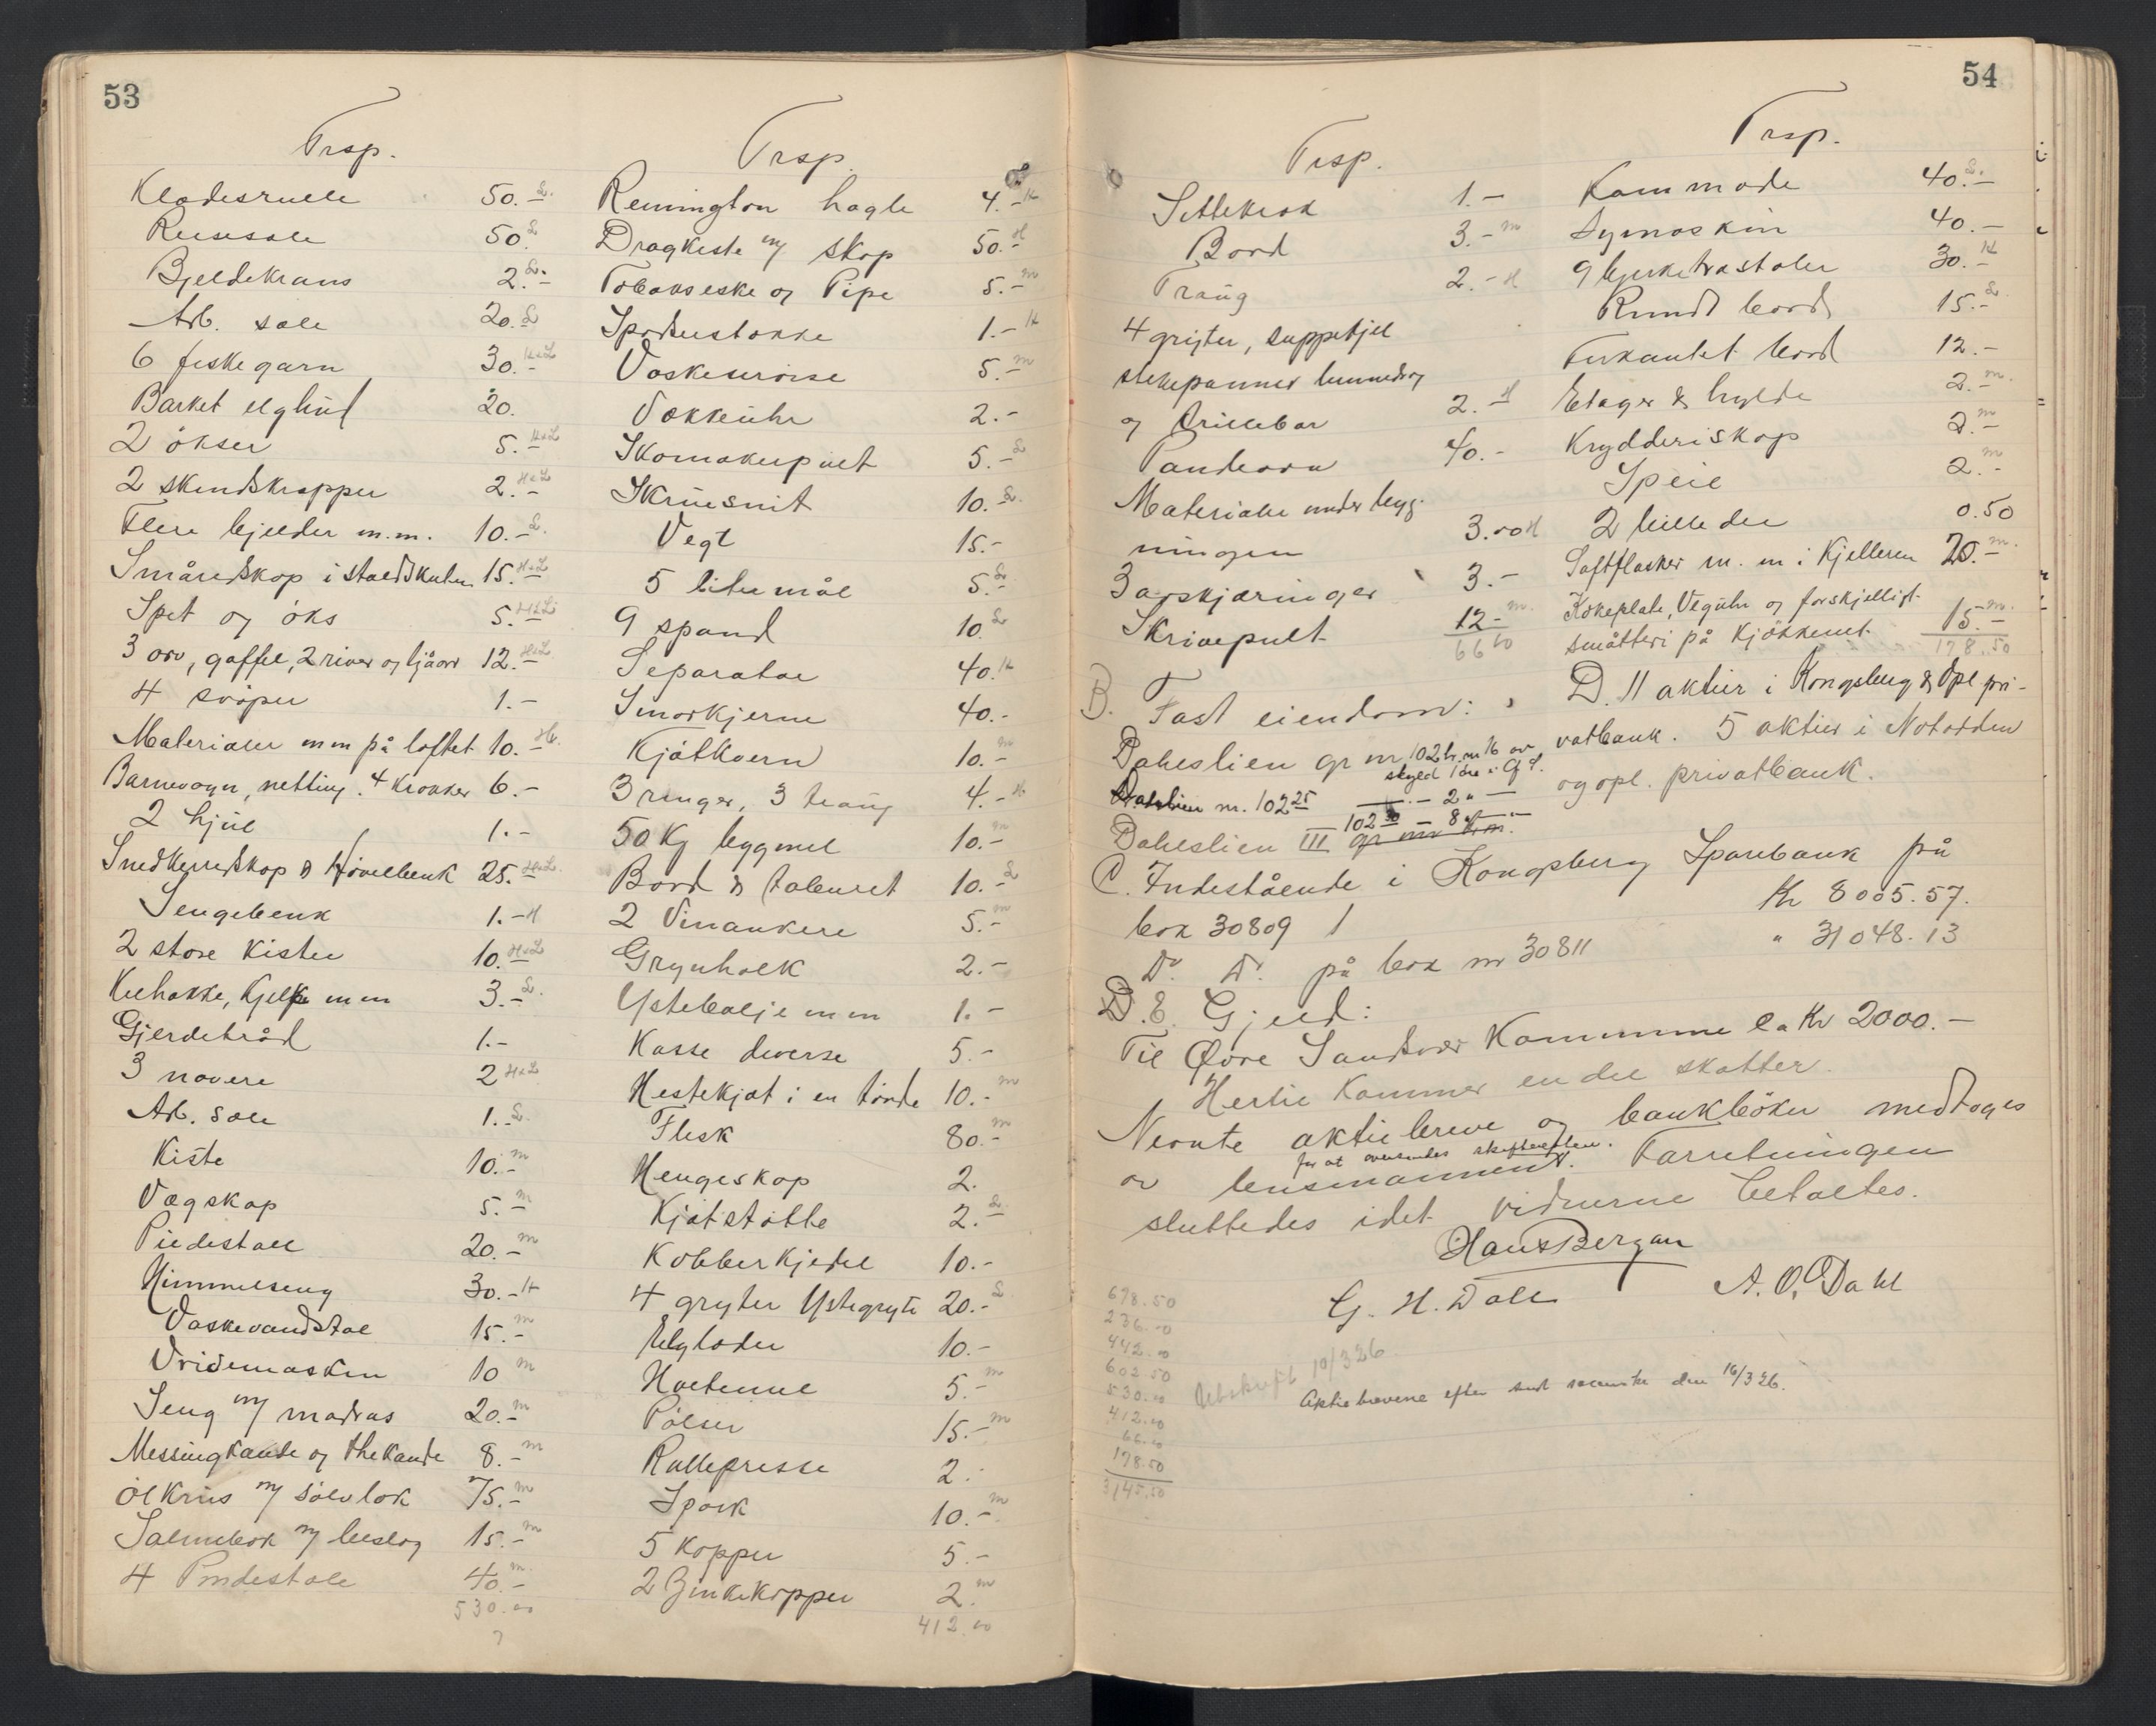 53
Trsp.
Kladesrulle 50.- L.
Reisesale 50. L
Bjeldekrans 2.- L.
Arb. sale 20. L
6 fiskegarn 30.- H&L
Barket elghud 20.
2 økser 5.- H&L
2 skindskrapper 2.- H&L
Flere bjelder m.m. 10.- L.
Småredskap i staldskuten 15.- H&L
Spet og øks 5.- H&L
3 orv, gaffel, 2 river og ljåorv 12.- H&L
4 svøper 1.-
Materialer m m på loftet 10.- H.
Barnevogn, netting, 4 krokker 6.-
2 hjul 1.-
Snedkerredskap & Høvelbenk 25.- H&L.
Sengebenk 1.- H
2 store kister 10.- H&L
Kulhakke, kjelke m m 3.- L.
Gjerdetråd 1.-
3 navere 2 H&L
Arb. sale 1.- L.
Kiste 10.- m
Vægskap 5.- m
Piedestall 20.- m
Himmelseng 30.- H
Vaskevandstol 15.- m
Vridemaskin 10 m
Seng m/ madras 20.- m
Messingkande og thekande 8.- m
Ølkrus m/ sølvlok 75.- m
Salmebok m/ beslag 15.- m
4 Pindestole 40.- m
530.00
Trsp.
Remington hagle 4.- H
Dragkiste m/ skap 50.- H
Tobakseske og Pipe 5.- m
Spaserstokke 1.- H
Vaskeservise 5.- m
Vækkeuhr 2.-
Skomakerpult 5.- L
Skruesnit 10.- L.
Vegt 15.-
5 liter mål 5.- L
9 spand 10. L
Separator 40. H
Smørkjerne 40.-
Kjøtkvern 10.- m
3 ringer, 3 traug 4.- H
50 kg byggmel 10.- m
Bord & taburet 10.- L
2 Vinankere 5.- m
Grynholk 2.-
Ystebalje m m 1.-
Kasse diverse 5.-
Hestekjøt i en tønde 10.- m
Flesk 80.- m
Hengeskap 2.
Kjøtstøtte 2.- L
Kobberkjedel 10.-
4 gryter Ystegryte 20.- L
10.-
Hvetemel 5.- m
Pølser 15.- m
Rullepresse 2.-
Spærk 10.- m
5 Kopper 5.-
2 Zinkekopper 2. m
412.00
54
Trsp.
Sittekrak 1.-
Bord 3.- m
Traug 2.- H
4 gryter, suppefjel
stekepanner
og brillebar 2.- H
Panteovn 40.-
Materialer under byg-
ningen 3.00 H
3 avskjæringer 3.-
Skrivepult 12.- m.
66 00
Trsp.
Kommode 40.- L.
Symaskin 40.-
9 bjerketræstoler 30.- H
Rundt bord 15.- L
Firkantet bord 12.-
Etager & hylde 2.- m.
Krydderiskap 2.- m
Speil 2.- m
2 billeder 0.50
Saftflasker m. m i kjelleren 20.- m.
Kokeplate, Veguhr og forskjelligt
småtteri på kjøkkenet 15.- m.
178.50
B. Fast eiendom:
Daleslien gr nr 102 br. nr 16 av
skyld 1 øre
Daleslien nr. 102 25 — 2 " —
102 30 — 8 " —
Daleslien III gr nr
D. 11 aktier i Kongsberg & Opl pri-
vatbank. 5 aktier i Notodden
og opl. privatbank.
C. Indestående i Kongsberg Sparebank på
bok 30809 Kr 8005.57.
Do. Do. på bok nr 30811 " 31048.13
D.E. Gjeld:
Til Øvre Sandsvær Kommune ca Kr 2000.-
Hertil kommer en del skatter.
Nevnte aktiebreve og bankbøker medtoges
for at oversendes skifteretten.
av lensmannen. Forretningen
sluttedes idet vidnerne betaltes.
Hans Bergan
G. H. Dale
A. O. Dahl
678.50
236.00
442.00
602.50
530.00
412.00
66.00
178.50
3145.50
Utskrift 10/3 26.
Aktiebrevene efter sendt sorenskr. den 16/3 26.